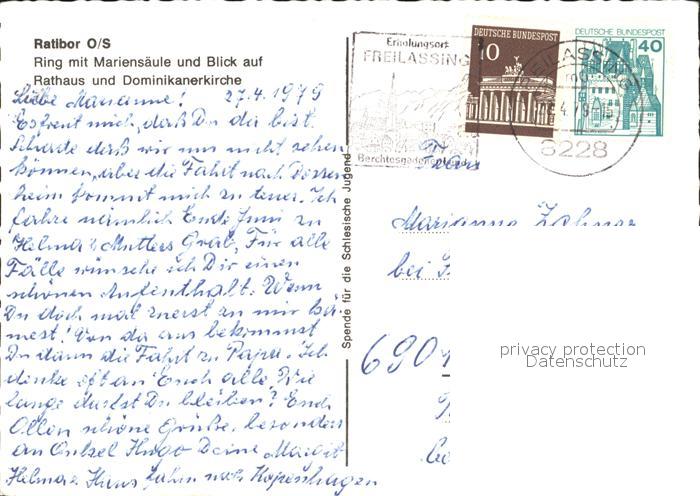 Ratibor O/S
Ring mit Mariensäule und Blick auf
Rathaus und Dominikanerkirche
Liebe Marianne! 27.4.1979
Es freut mich, daß Du da bist.
Schade daß wir uns nicht sehen
können, aber die Fahrt nach Dossen
heim kommt mich zu teuer. Ich
fahre nämlich Ende Juni zu
Helma's Mutters Grab, Für alle
Fälle wünsche ich Dir einen
schönen Aufenthalt. Wenn
Du doch mal zuerst zu mir kä-
mest! Von da aus bekommst
Du dann die Fahrt zu Papa. Ich
denke oft an Euch alle. Wie
lange darfst Du bleiben? Euch
Allen schöne Grüße, besonders
an Onkel Hugo Deine Margit
Helma u Hans fahrn nach Kopenhagen
Spende für die Schlesische Jugend
Erholungsort
FREILASSING
Berchtesgadener Land
DEUTSCHE BUNDESPOST
10
DEUTSCHE BUNDESPOST
40
FREILASSING
8228
Frau
Marianne
bei
690
privacy protection
Datenschutz